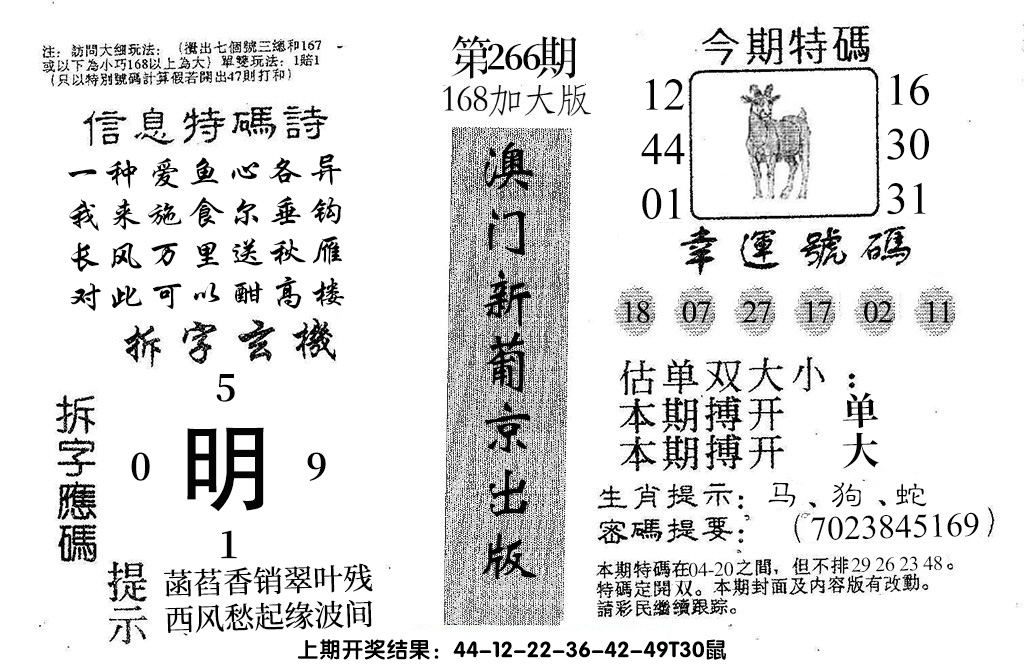 注：訪問大细玩法：（攪出七個號三總和167
或以下為小巧168以上為大）單雙玩法：1賠1
（只以特別號碼計算假若開出47則打和）
信息特碼詩
一种爱鱼心各异
我来施食尔垂钩
长风万里送秋雁
对此可以酣高楼
拆字玄機
5
0 明 9
1
拆字應碼
提示
菡萏香销翠叶残
西风愁起缘波间
第266期
168加大版
澳门新葡京出版
今期特碼
12 16
44 30
01 31
幸運號碼
18 07 27 17 02 11
估单双大小：
本期搏开 单
本期搏开 大
生肖提示：马、狗、蛇
密碼提要：（7023845169）
本期特碼在04-20之間，但不排29 26 23 48。
特碼定開双。本期封面及内容版有改動。
請彩民繼續跟踪。
上期开奖结果：44-12-22-36-42-49T30鼠